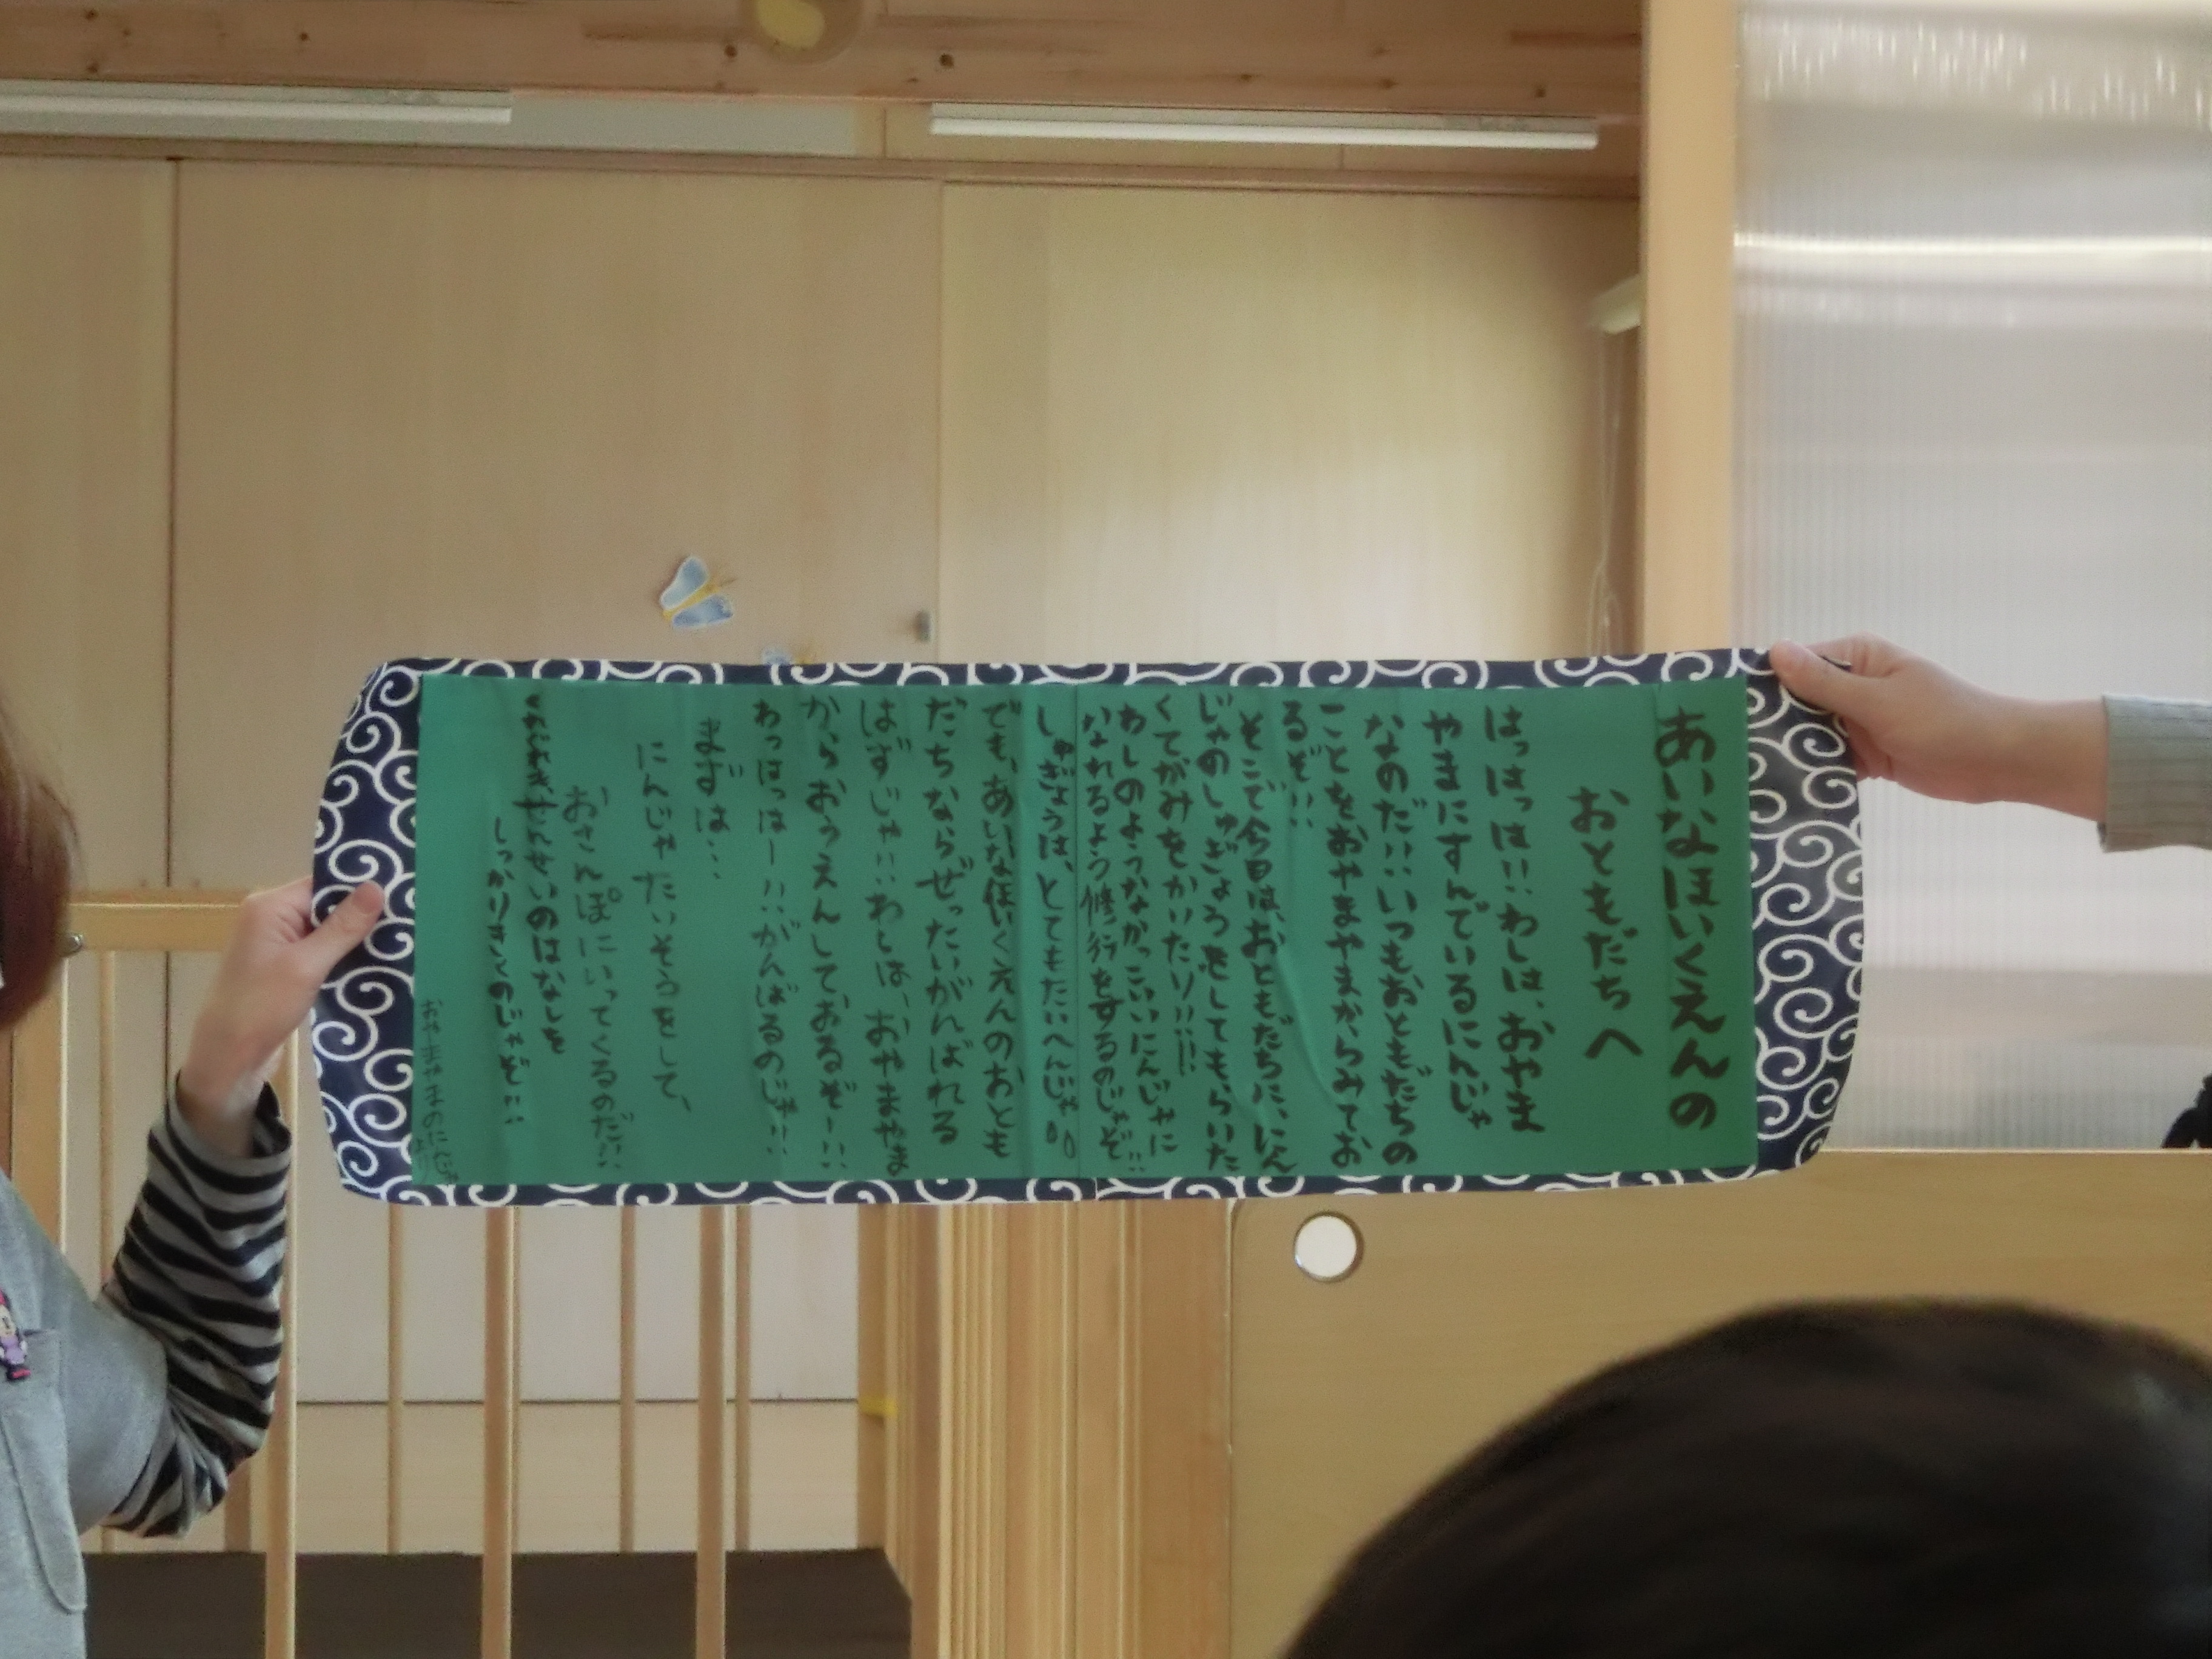 あいなほいくえんの
おともだちへ
はっはっは!!わしは、おやま
やまにすんでいるにんじゃ
なのだ!!いつもおともだちの
ことをおやまやまからみてお
るぞ!!
そこで今日は、おともだちに、にん
じゃのしゅぎょうをしてもらいた
くてがみをかいたり!!!!
わしのようなかっこいいにんじゃに
なれるよう修行をするのじゃぞ!!
しゅぎょうは、とてもたいへんじゃ
でも、あいなほいくえんのおとも
だちならぜったいがんばれる
はずじゃ!!わしは、おやまやま
からおうえんしておるぞー!!
わっはっはー!!がんばるのじゃ!!
まずは…
にんじゃたいそうをして、
おさんぽにいってくるのだ!!
せんせいのはなしを
しっかりきくのじゃぞ!!
おやまやまのにんじゃ
より